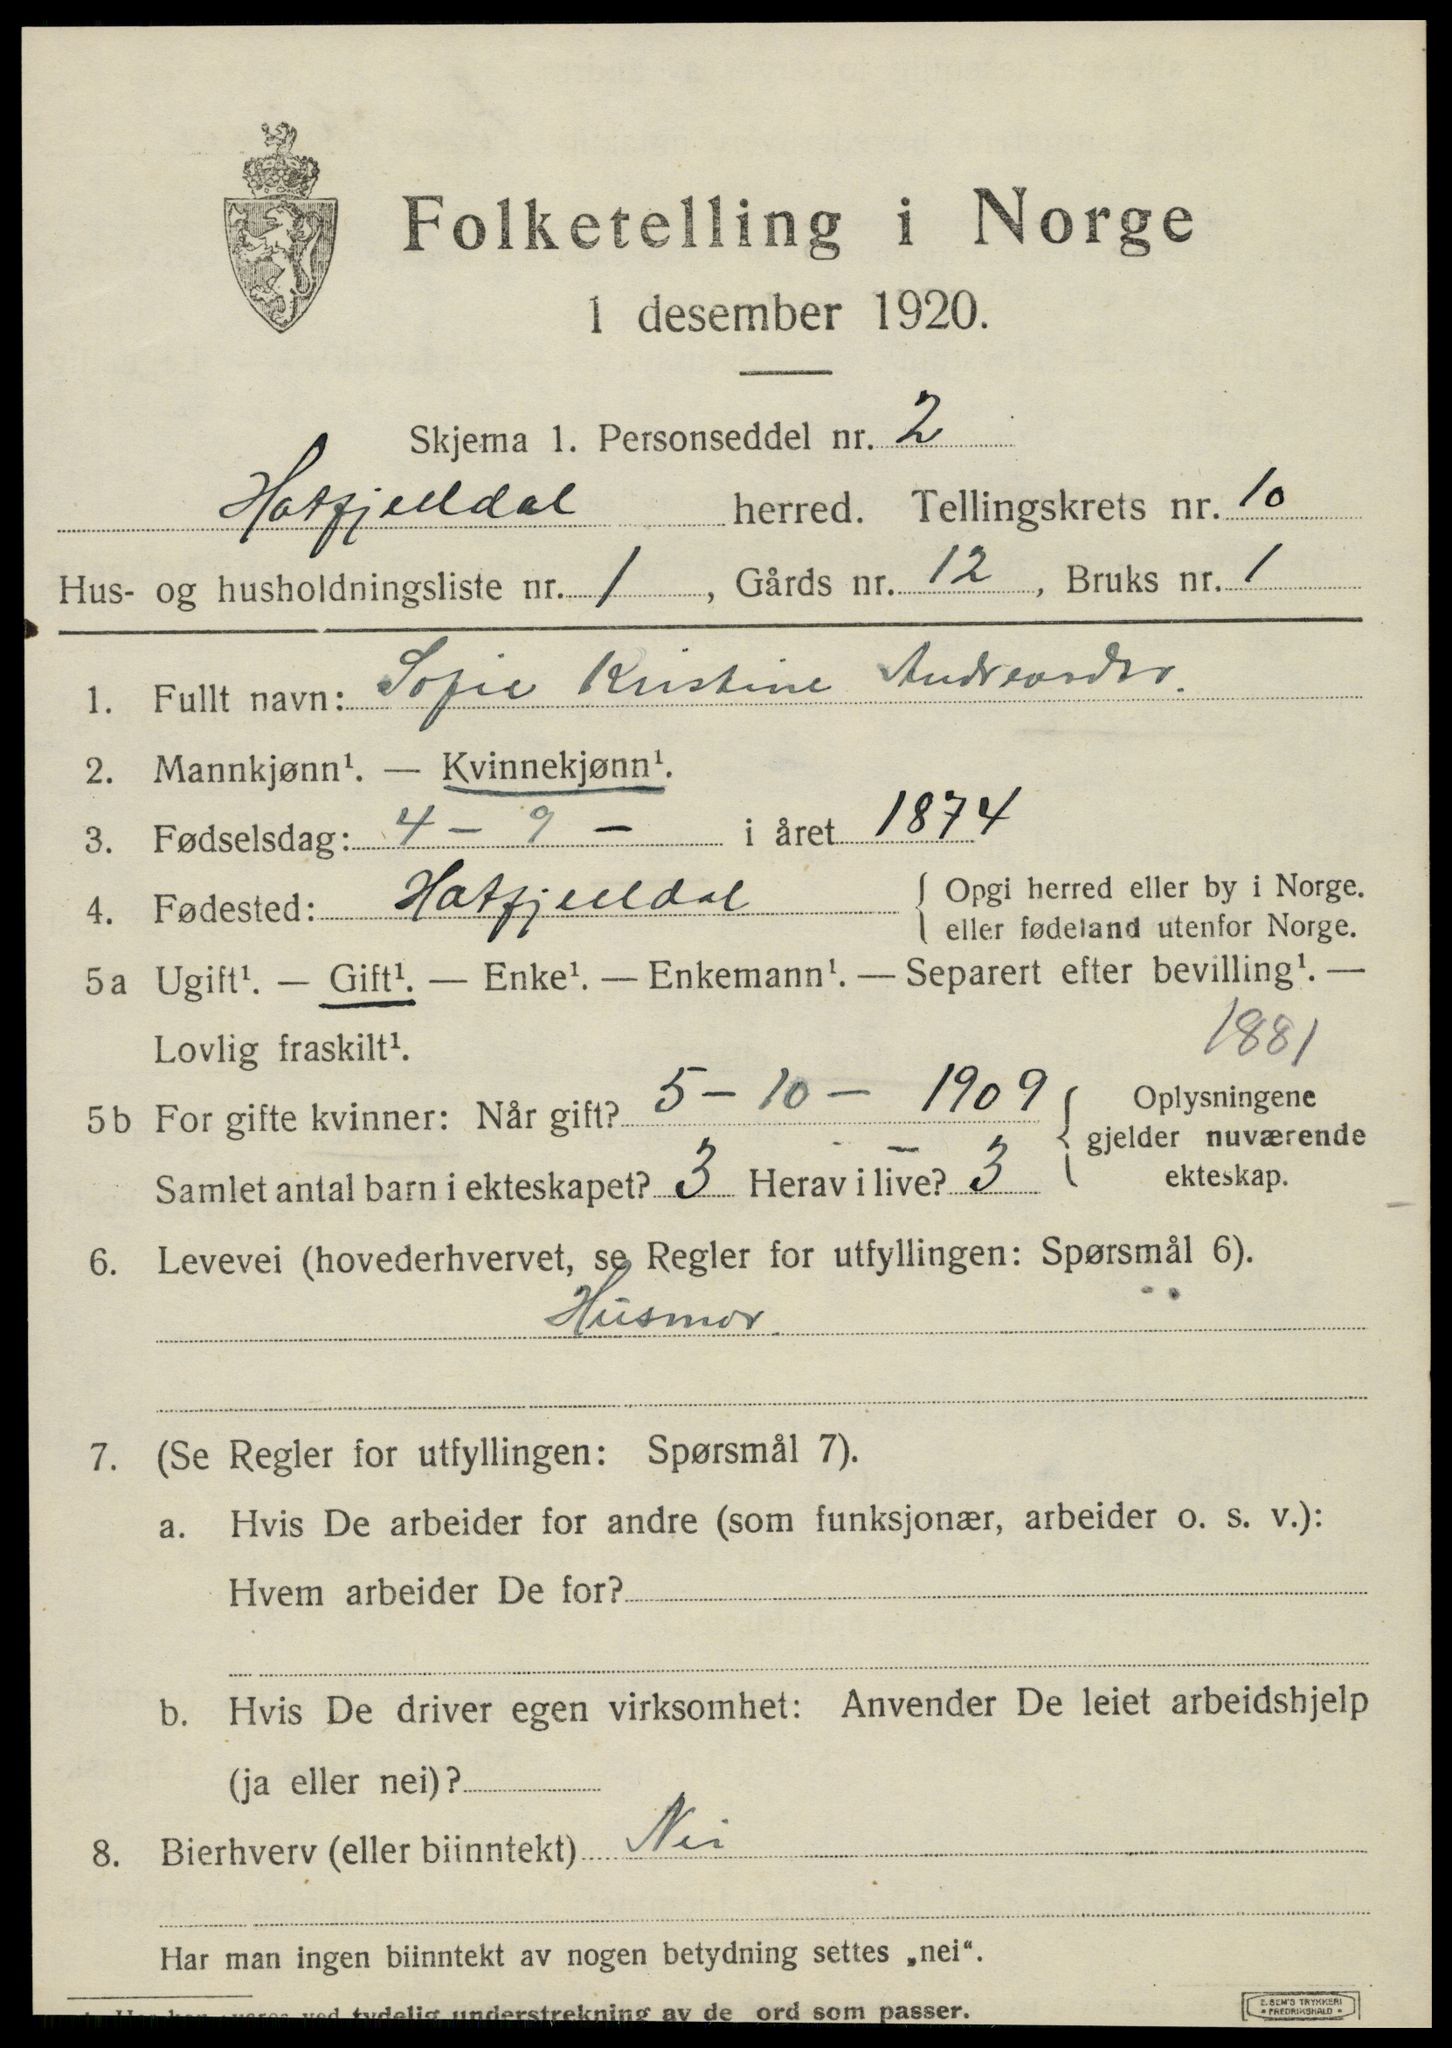 Folketelling i Norge
1 desember 1920.
Skjema 1. Personseddel nr. 2
Hatfjelldal herred. Tellingskrets nr. 10
Hus- og husholdningsliste nr. 1, Gårds nr. 12, Bruks nr. 1
1. Fullt navn: Sofie Kristine Andreasdr.
2. Mannkjønn¹. — Kvinnekjønn¹.
3. Fødselsdag: 4 - 9 - i året 1874
4. Fødested: Hatfjelldal { Opgi herred eller by i Norge.
eller fødeland utenfor Norge.
5a Ugift¹. — Gift¹. — Enke¹. — Enkemann¹. — Separert efter bevilling¹. —
Lovlig fraskilt¹.
1881
5b For gifte kvinner: Når gift? 5 - 10 - 1909 { Oplysningene
gjelder nuværende
Samlet antal barn i ekteskapet? 3 Herav i live? 3 ekteskap.
6. Levevei (hovederhvervet, se Regler for utfyllingen: Spørsmål 6).
Husmor.
7. (Se Regler for utfyllingen: Spørsmål 7).
a. Hvis De arbeider for andre (som funksjonær, arbeider o. s. v.):
Hvem arbeider De for?
b. Hvis De driver egen virksomhet: Anvender De leiet arbeidshjelp
(ja eller nei)?
8. Bierhverv (eller biinntekt) Nei
Har man ingen biinntekt av nogen betydning settes „nei“.
tydelig understrekning av de ord som passer.
E. SEM'S TRYKKERI
FREDRIKSHALD